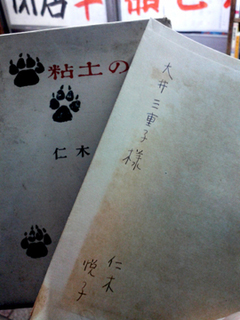 粘土の
仁木
大井三重子様
仁木
悦子